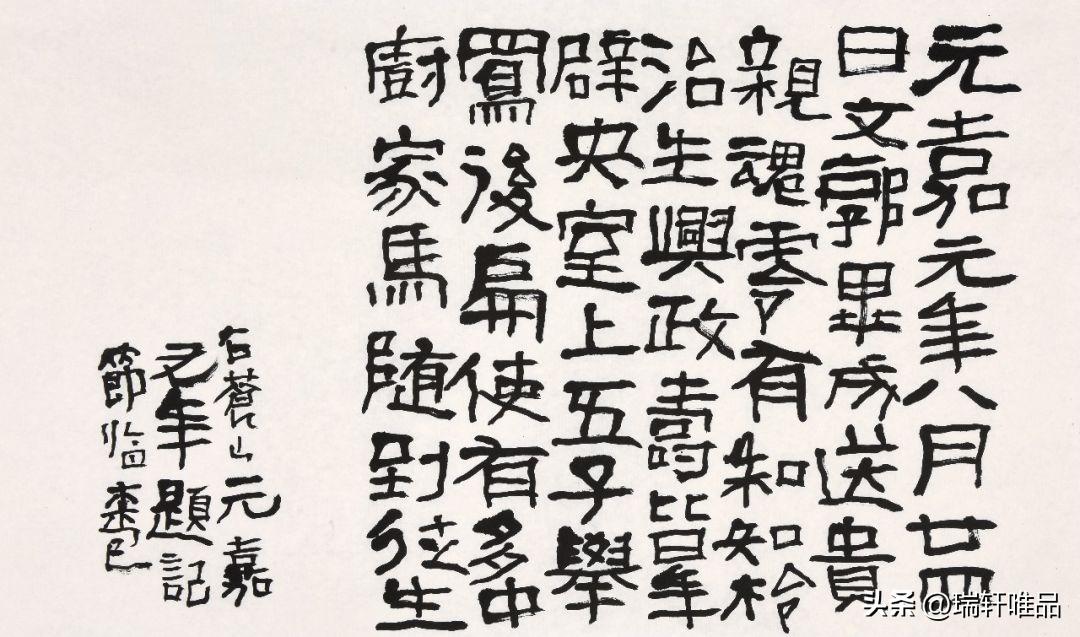 元嘉元年八月廿四
日文郭畢成送貴
親魂零有知知柃
治生興政壽皆年
辟央室上五子舉
後扁使有多中
廚家馬隨到徃生
右蒼山元嘉
年題記
節临
头条 @瑞轩唯品